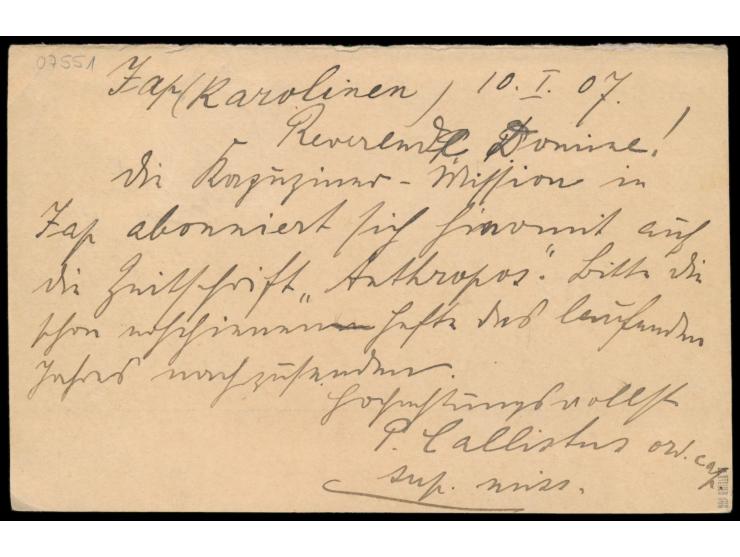 07551
Jap (Karolinen) 10. I. 07.
Reverende Domine!
Die Kapuziner-Mission in
Jap abonniert sich hiermit auf
die Zeitschrift „Anthropos“. Bitte die
schon erschienenen Hefte des laufenden
Jahres nachzusenden.
Hochachtungsvollst
P. Callistus ord. cap.
sup. miss.